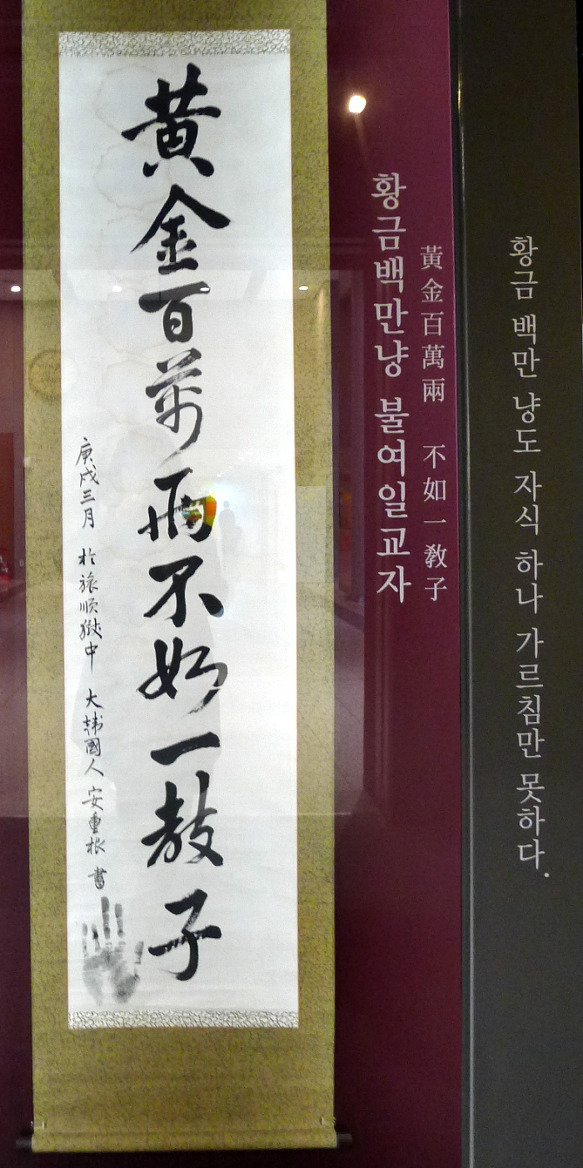 黃金百萬兩不如一敎子
庚戌三月 於旅順獄中 大韓國人 安重根 書
황금백만냥 불여일교자
黃金百萬兩 不如一敎子
황금 백만 냥도 자식 하나 가르침만 못하다.